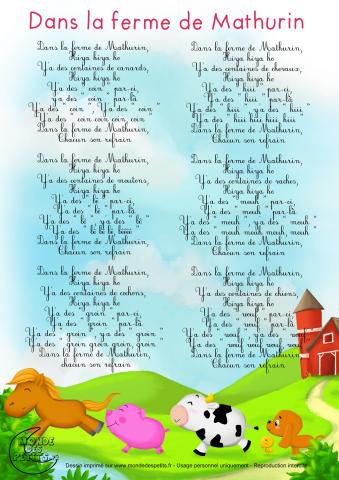 Dans la ferme de Mathurin
Dans la ferme de Mathurin,
Hiya hiya ho
Y'a des centaines de canards,
Hiya hiya ho
Y'a des " coin " par-ci,
y'a des " coin " par-là
Y'a des " coin ", y'a des " coin "
Y'a des " coin coin coin, coin "
Dans la ferme de Mathurin,
Chacun son refrain
Dans la ferme de Mathurin,
Hiya hiya ho
Y'a des centaines de moutons,
Hiya hiya ho
Y'a des " bê " par-ci,
Y'a des " bê " par-là
Y'a des " bê ", y'a des " bê "
Y'a des " bê bê bê bêêê "
Dans la ferme de Mathurin,
Chacun son refrain
Dans la ferme de Mathurin,
Hiya hiya ho
Y'a des centaines de cochons,
Hiya hiya ho
Y'a des " groin " par-ci,
Y'a des " groin " par-là
Y'a des " groin ", y'a des " groin "
Y'a des " groin groin groin, groin "
Dans la ferme de Mathurin,
chacun son refrain
Dans la ferme de Mathurin,
Hiya hiya ho
Y'a des centaines de chevaux,
Hiya hiya ho
Y'a des " hiii " par-ci,
Y'a des " hiii " par-là
Y'a des " hiii ", y'a des " hiii "
Y'a des " hiii hiii hiii hiii "
Dans la ferme de Mathurin,
Chacun son refrain
Dans la ferme de Mathurin,
Hiya hiya ho
Y'a des centaines de vaches,
Hiya hiya ho
Y'a des " meuh " par-ci,
Y'a des " meuh " par-là
Y'a des " meuh ", y'a des " meuh "
Y'a des " meuh meuh meuh, meuh "
Dans la ferme de Mathurin,
Chacun son refrain
Dans la ferme de Mathurin,
Hiya hiya ho
Y'a des centaines de chiens,
Hiya hiya ho
Y'a des " wouf " par-ci,
Y'a des " wouf " par-là
Y'a des " wouf ", y'a des " wouf "
Y'a des " wouf wouf wouf, wouf "
Dans la ferme de Mathurin,
Chacun son refrain
MONDE
DES
PETITS.fr
Dessin imprimé sur www.mondedespetits.fr - Usage personnel uniquement - Reproduction interdite